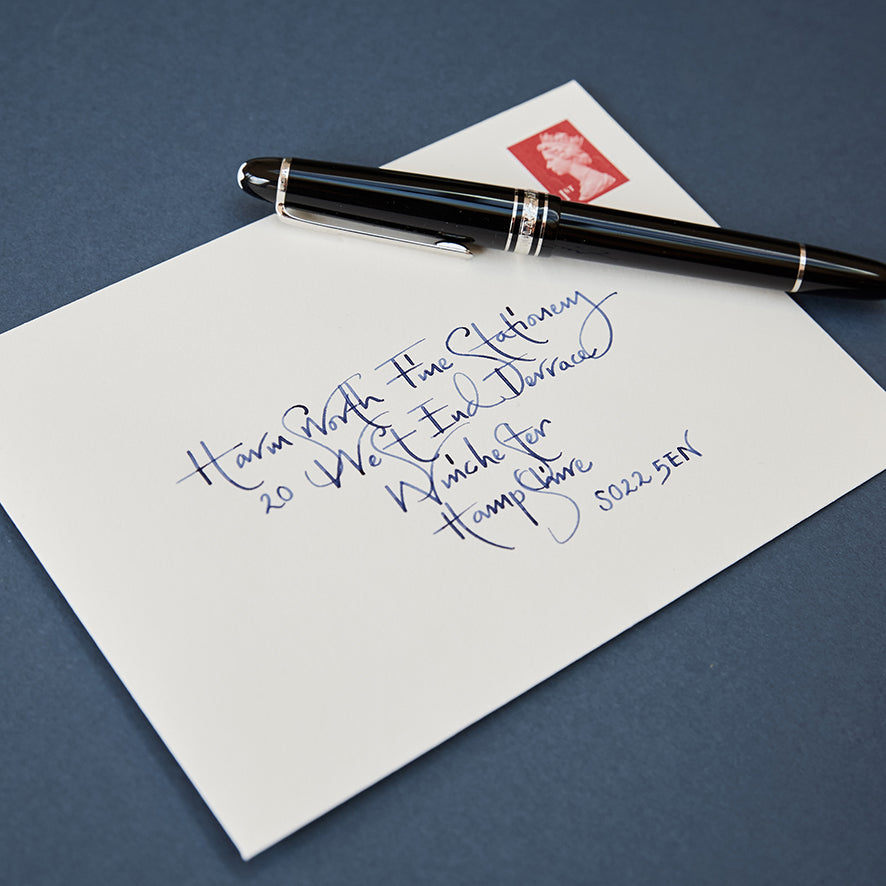 1ST
HarmSworth Fine Stationery
20 West End Terrace
Winchester
Hampshire SO22 5EN